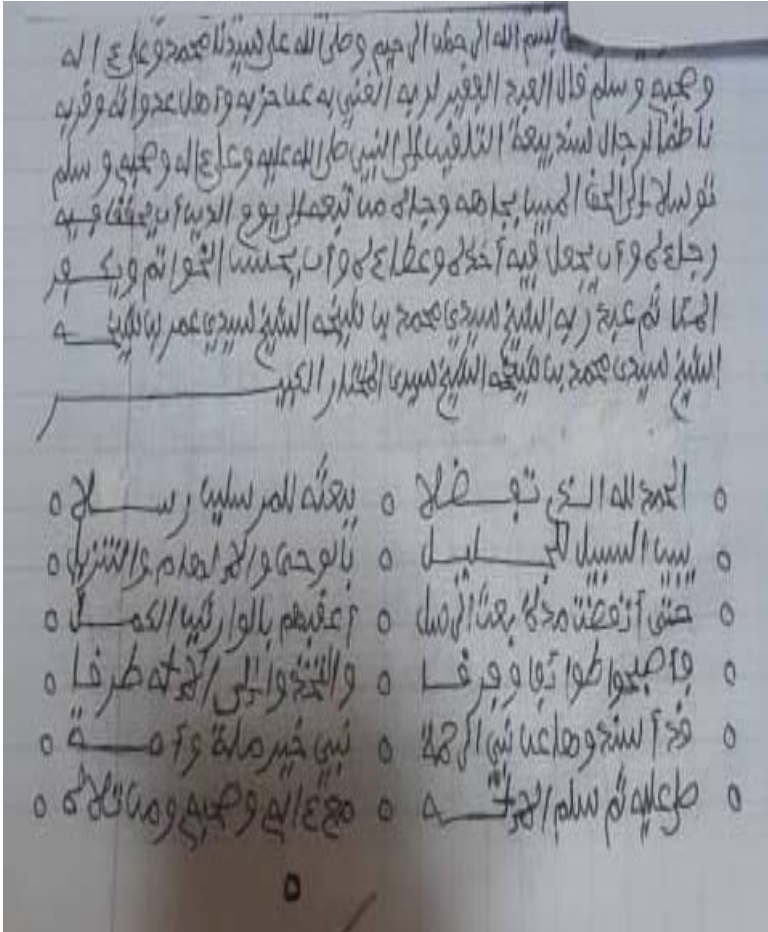 بسم الله الرحمن الرحيم وصلى الله على سيدنا محمد وعلى ءاله
وصحبه وسلم قال العبد الفقير لربه الغني به عن حزبه وأهل عدوانه وقربه
ناظما لرجال سند بيعة التلقين إلى النبي صلى الله عليه وعلى ءاله وصحبه وسلم
توسلا إلى الحق المبين بجاهه وجاه من تبعه إلى يوم الدين أن يحقق فيه
رجاءه وأن يجعل فيه أخذه وعطاءه وأن يحسن الخواتم ويكفر
المئاثم عبد ربه الشيخ سيدي محمد بن شيخه الشيخ سيدي عمر بن شيخه
الشيخ سيدي محمد بن شيخه الشيخ سيدي المختار الكبير
الحمد لله الذي تفضلا ه ببعثه للمرسلين رسلا ه
يبين السبيل للجليل ه بالوحي والإلهام والتنزيل ه
حتى أنقضت مدة بعث الرسل ه أعقبهم بالوارثين الكمل ه
فأصبحوا طوائفا وفرقا ه واتخذوا إلى الإله طرقا ه
قد أسندوها عن نبي الرحمة ه نبي خير ملة وأمة ه
صلى عليه ثم سلم الإله ه مع ءاله وصحبه ومن تلاه ه